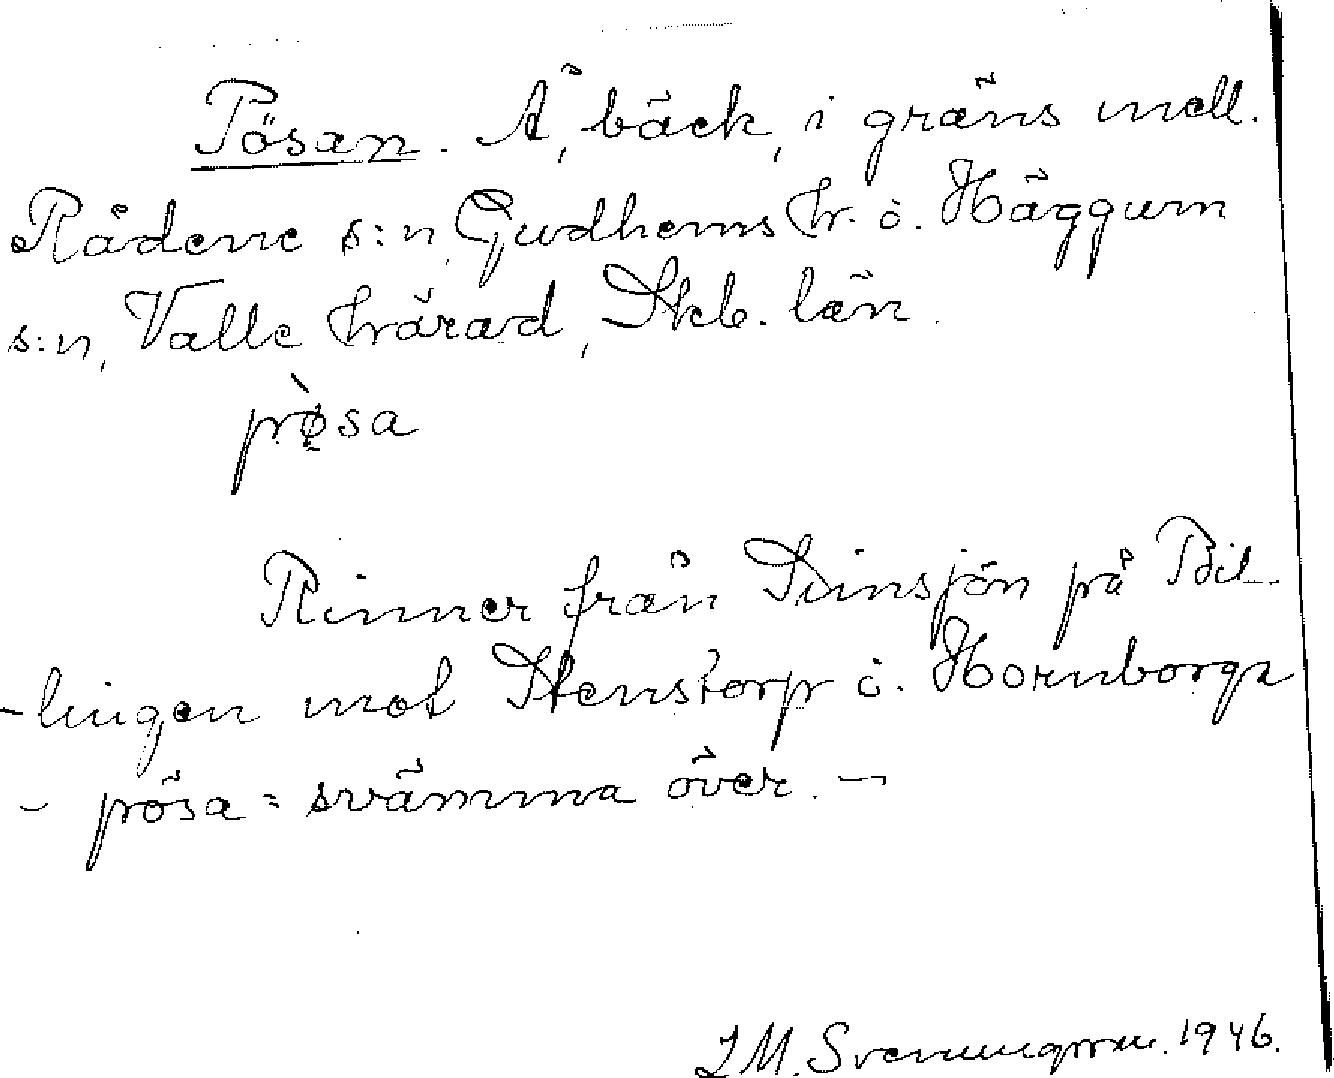 Pösan. Å, bäck, i gräns mell.
Rådene s:n, Gudhems hr. o. Häggum
s:n, Valle härad, Skb. län.
pø̀sa
Rinner från Simsjön på Bil-
-lingen mot Stenstorp o. Hornborga
- pösa = svämma över. -
J M. Svenungsson. 1946.